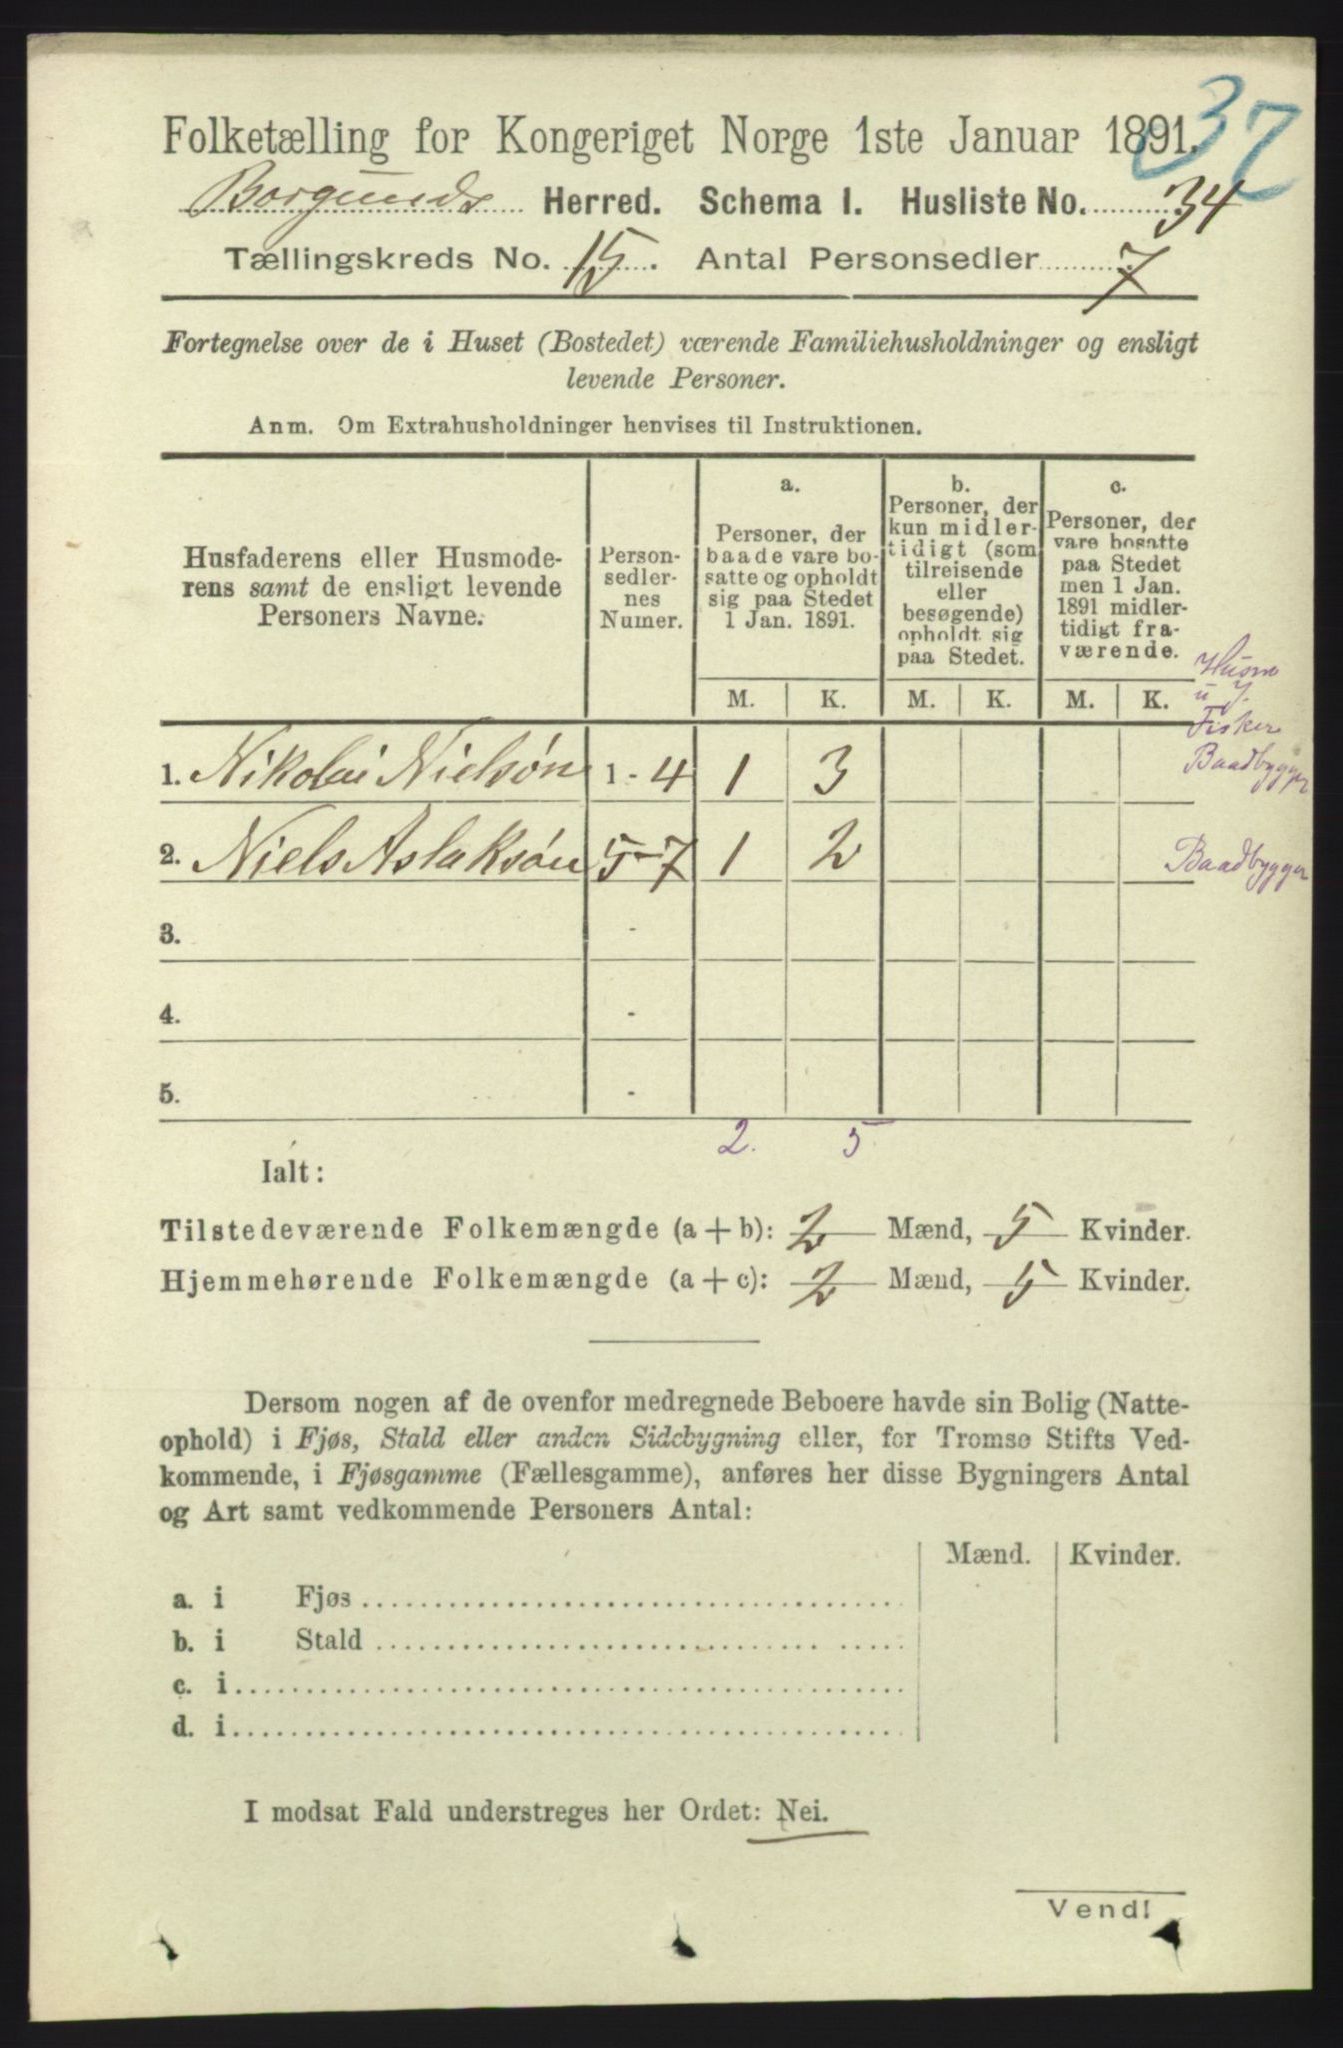 37
Folketælling for Kongeriget Norge 1ste Januar 1891.
Borgunds Herred. Schema I. Husliste No. 34
Tællingskreds No. 15. Antal Personsedler 7
Fortegnelse over de i Huset (Bostedet) værende Familiehusholdninger og ensligt
levende Personer.
Anm. Om Extrahusholdninger henvises til Instruktionen.
Husfaderens eller Husmode-
rens samt de ensligt levende
Personers Navne.
Person-
sedler-
nes
Numer.
a.
Personer, der
baade vare bo-
satte og opholdt
sig paa Stedet
1 Jan. 1891.
b.
Personer, der
kun midler-
tidigt (som
tilreisende
eller
besøgende)
opholdt sig
paa Stedet.
c.
Personer, der
vare bosatte
paa Stedet
men 1 Jan.
1891 midler-
tidigt fra-
værende.
M. K. M. K. M. K.
Husm
u J.
Fisker
Baadbygger
1. Nikolai Nielsøn 1-4 1 3
2. Niels Aslaksøn 5-7 1 2 Baadbygger
3. -
4. -
5. -
2. 5
Ialt:
Tilstedeværende Folkemængde (a+b): 2 Mænd, 5 Kvinder.
Hjemmehørende Folkemængde (a+c): 2 Mænd, 5 Kvinder.
Dersom nogen af de ovenfor medregnede Beboere havde sin Bolig (Natte-
ophold) i Fjøs, Stald eller anden Sidebygning eller, for Tromsø Stifts Ved-
kommende, i Fjøsgamme (Fællesgamme), anføres her disse Bygningers Antal
og Art samt vedkommende Personers Antal:
Mænd. Kvinder.
a. i Fjøs
b. i Stald
c. i
d. i
I modsat Fald understreges her Ordet: Nei.
Vend!